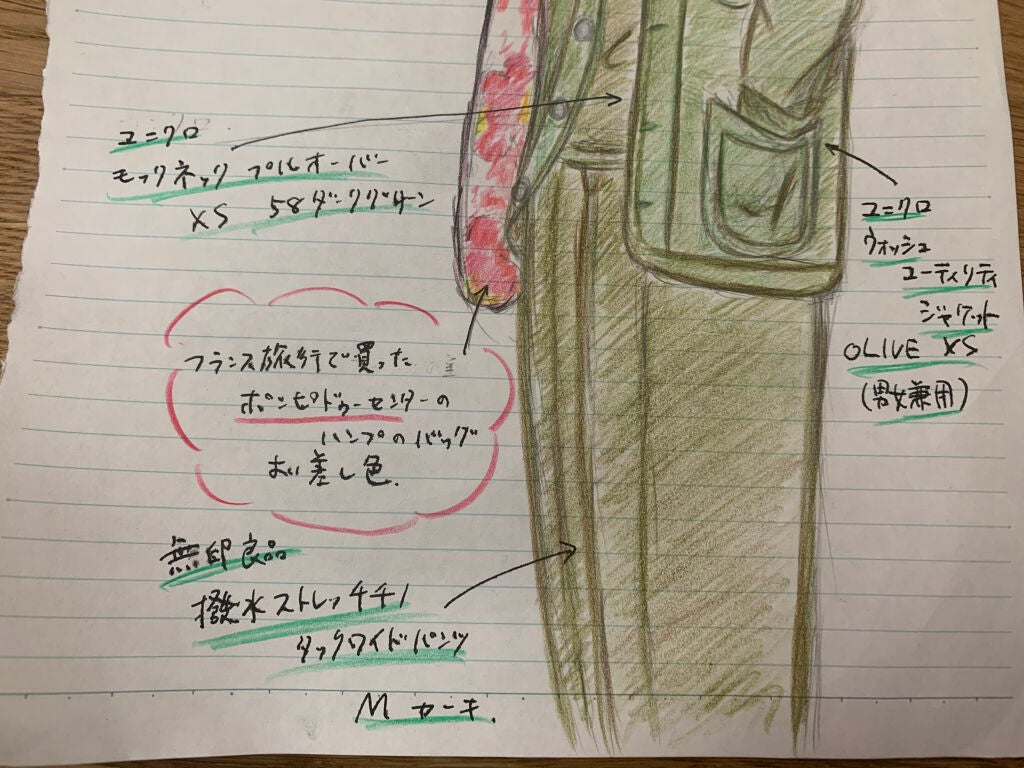 ユニクロ
モックネック プルオーバー
XS 58ダークグリーン
ユニクロ
ウォッシュ
ユーティリティ
ジャケット
OLIVE XS
(男女兼用)
フランス旅行で買った
ポンピドゥーセンターの
ハンプのバッグ
が差し色.
無印良品
撥水ストレッチチノ
タックワイドパンツ
M カーキ.